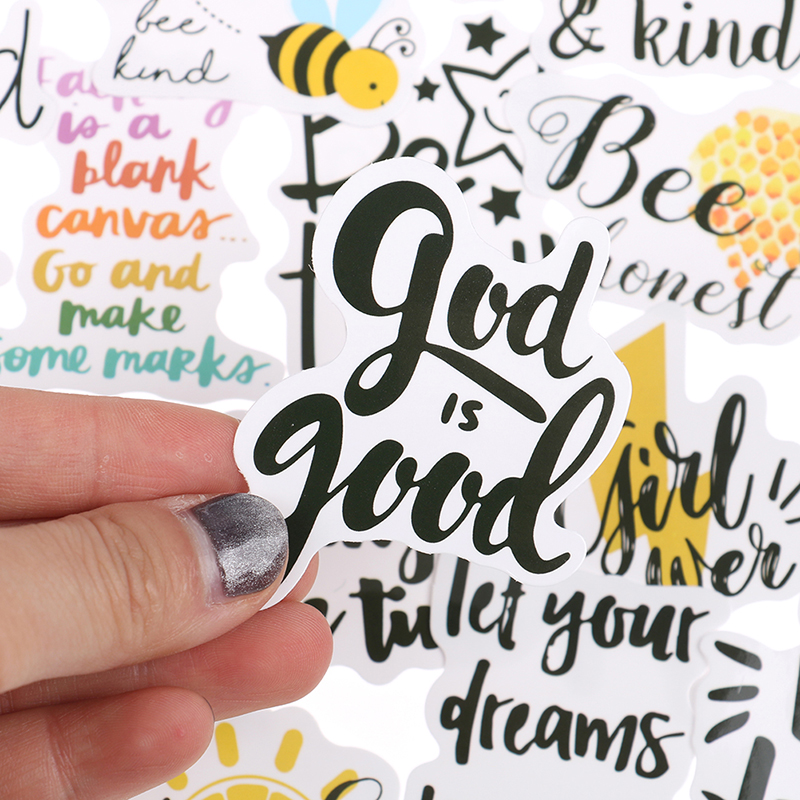 bee
kind
& kind
is a
blank
canvas...
Go and
make
some marks.
Bee
honest
god
is
good
girl
let your
dreams